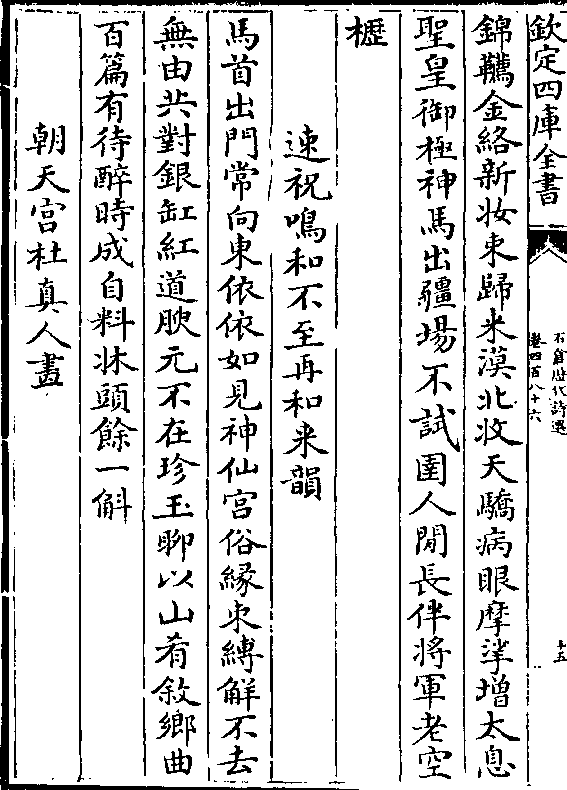 欽定四庫全書
石倉歴代詩選
卷四百八十六
十五
錦韉金絡新妝束歸来漠北收天驕病眼摩挲增太息
聖皇御極神馬出疆場不試圉人閒長伴將軍老空
櫪
速祝鳴和不至再和来韻
馬首出門常向東依依如見神仙宫俗縁束縛解不去
無由共對銀缸紅道腴元不在珍玉聊以山肴敘鄉曲
百篇有待醉時成自料牀頭餘一斛
朝天宫杜真人畫